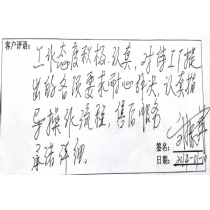 客户评语：
工作态度积极、认真，对待工厂提
出的各项要求耐心解决，认真指
导操作流程，售后服务
承诺详细。
签名：
日期：